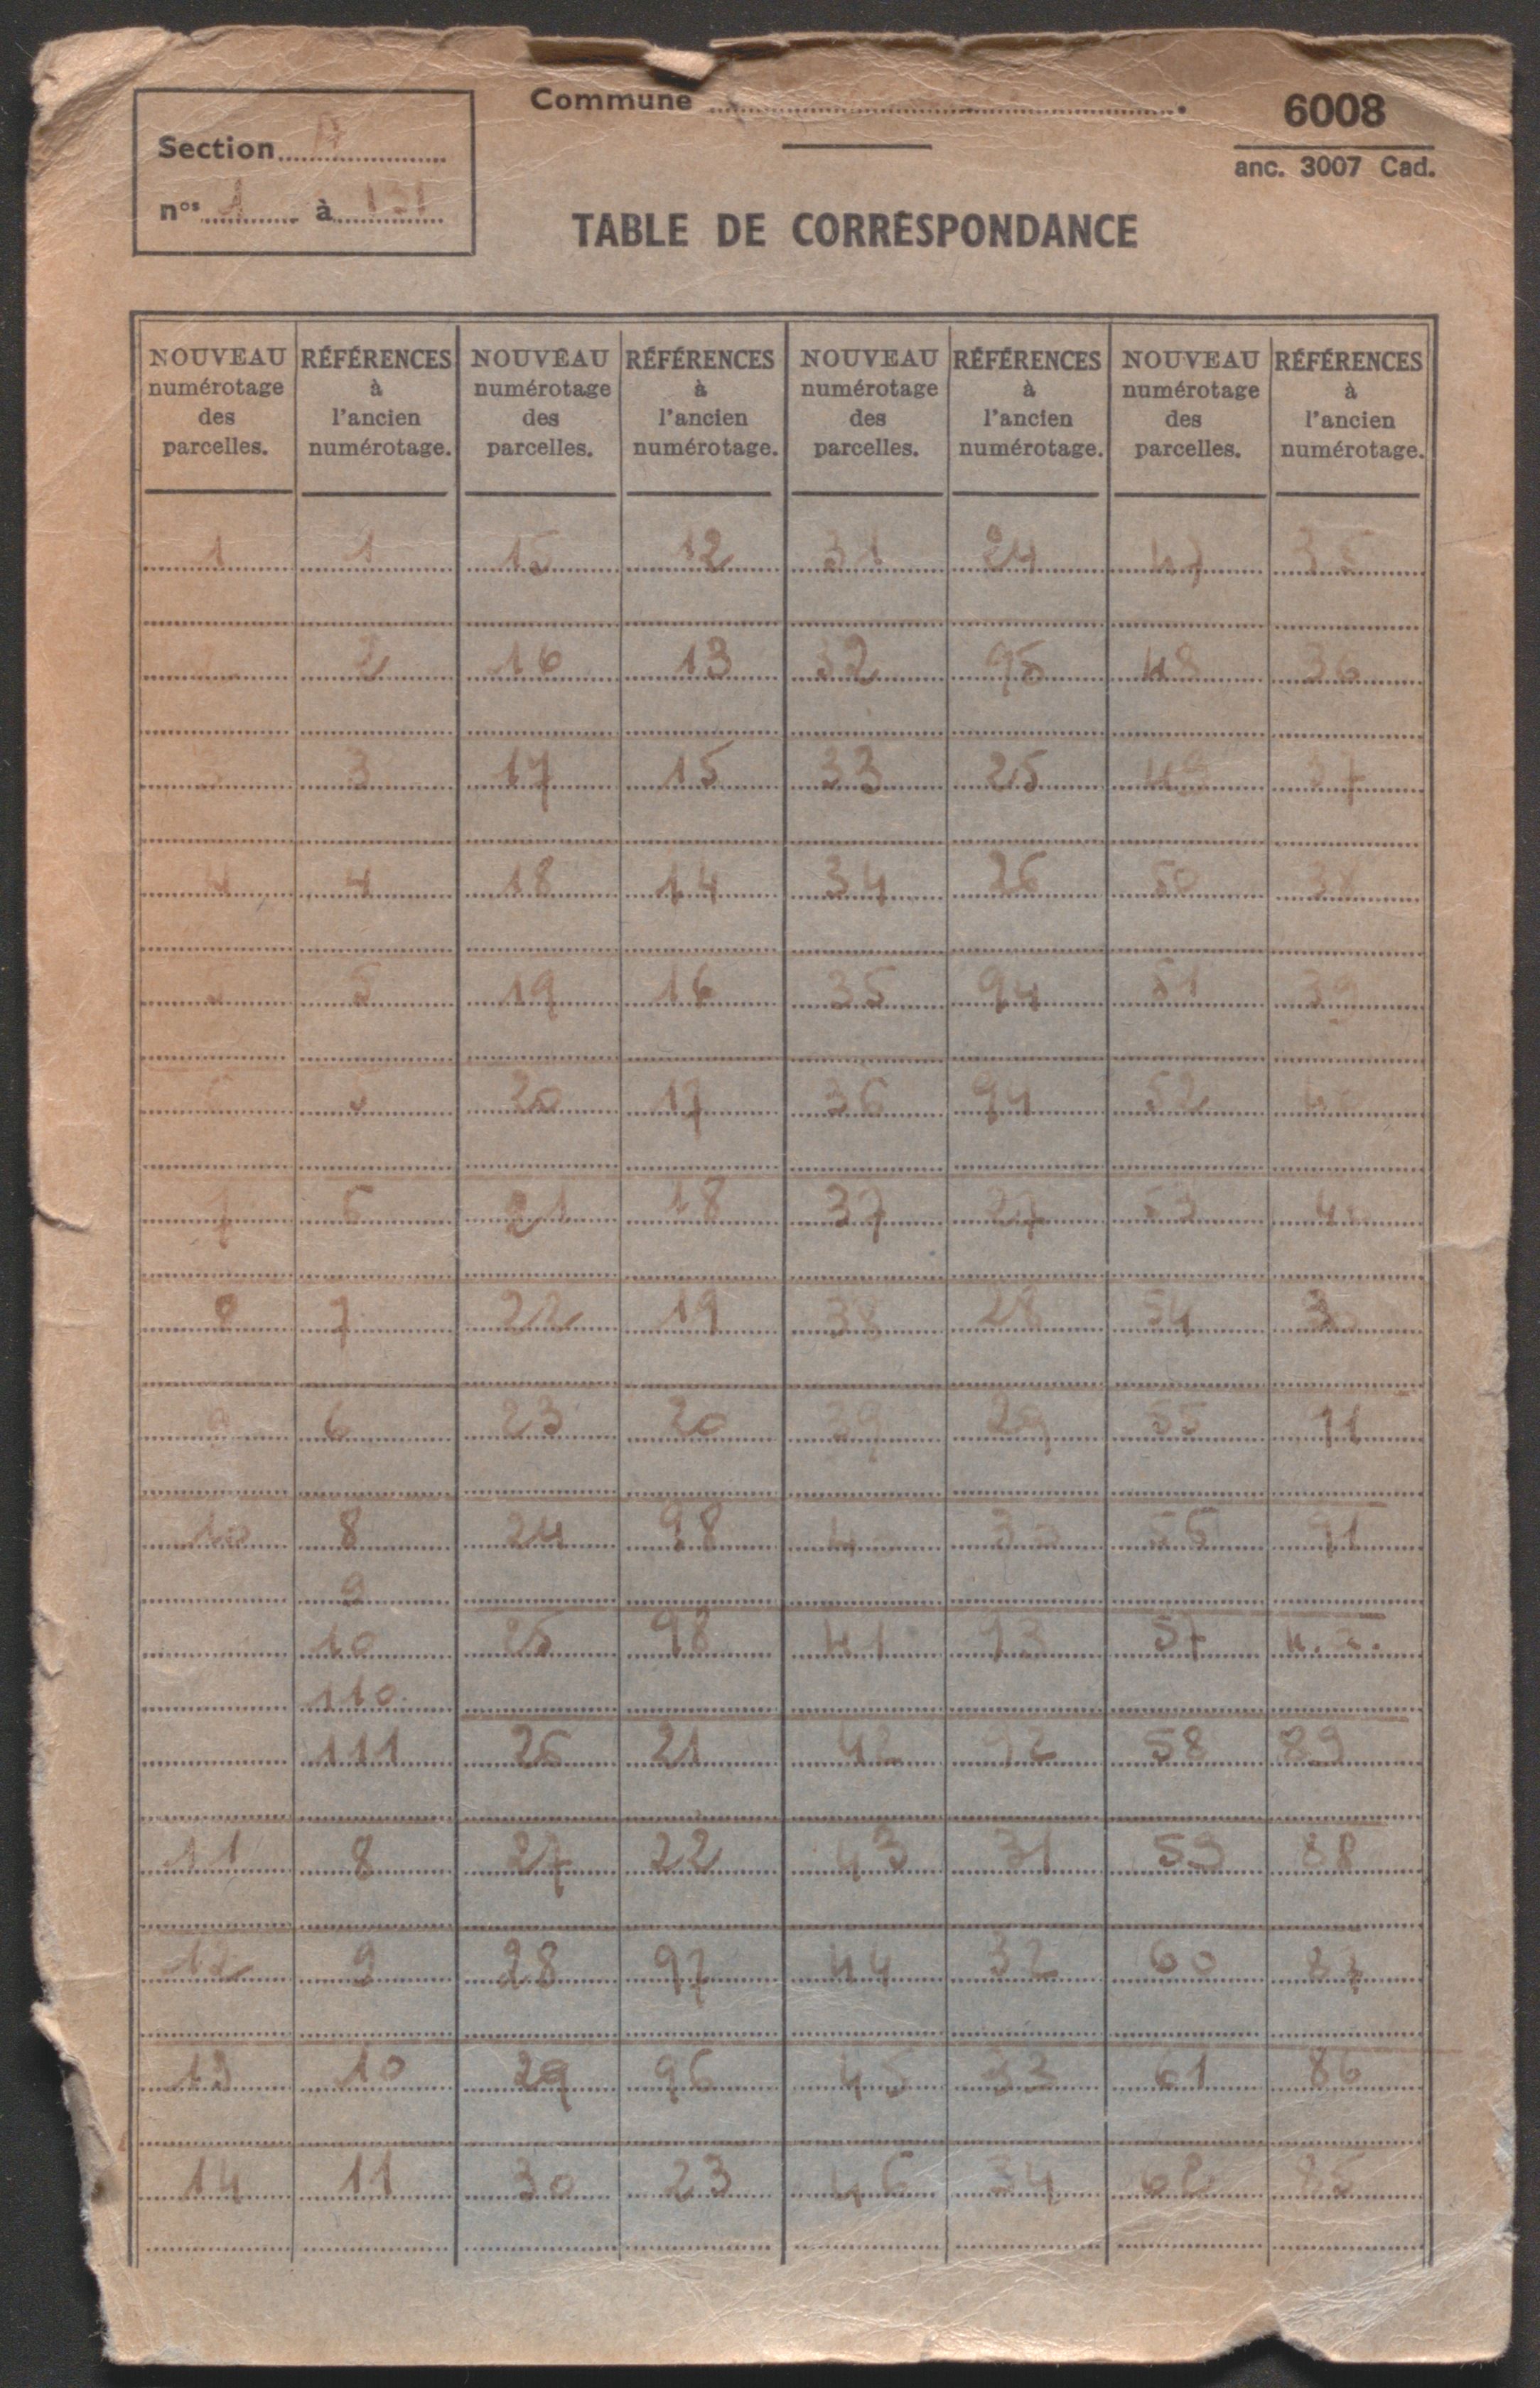 Commune
6008
anc. 3007 Cad.
Section A
nos 1 à 131
TABLE DE CORRESPONDANCE
NOUVEAU RÉFÉRENCES NOUVEAU RÉFÉRENCES NOUVEAU RÉFÉRENCES NOUVEAU RÉFÉRENCES
numérotage à numérotage à numérotage à numérotage à
des l'ancien des l'ancien des l'ancien des l'ancien
parcelles. numérotage. parcelles. numérotage. parcelles. numérotage. parcelles. numérotage.
1 1 15 12 31 24 47 35
2 2 16 13 32 95 48 36
3 3 17 15 33 25 49 37
4 4 18 14 34 26 50 38
5 5 19 16 35 94 51 39
6 5 20 17 36 94 52 40
7 6 21 18 37 27 53 40
8 7 22 19 38 28 54
9 6 23 20 39 29 55 91
10 8 24 98 40 30 56 91
9
10 25 98 41 93 57
110
111 26 21 42 92 58 89
11 8 27 22 43 31 59 88
12 9 28 97 44 32 60 87
13 10 29 96 45 33 61 86
14 11 30 23 46 34 62 85